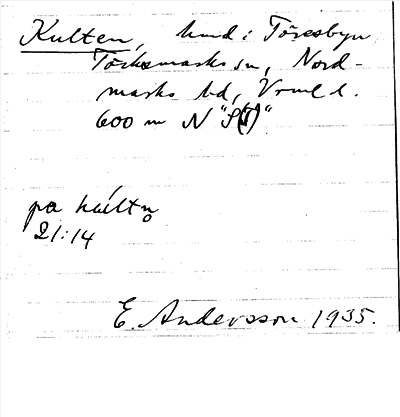 Kulten, hmd i Töresbyn
Töcksmarks sn, Nord-
marks hd, Vrml l.
600 m N "S(J)"
pɑ kúltn̥
21:14
E. Andersson 1935.